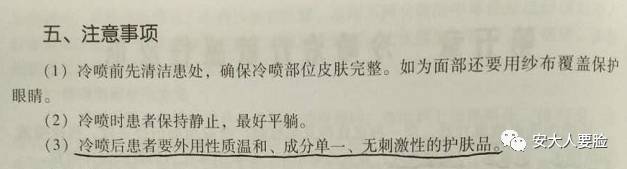 五、注意事项
（1）冷喷前先清洁患处，确保冷喷部位皮肤完整。如为面部还要用纱布覆盖保护
眼睛。
（2）冷喷时患者保持静止，最好平躺。
（3）冷喷后患者要外用性质温和、成分单一、无刺激性的护肤品。
安大人要脸